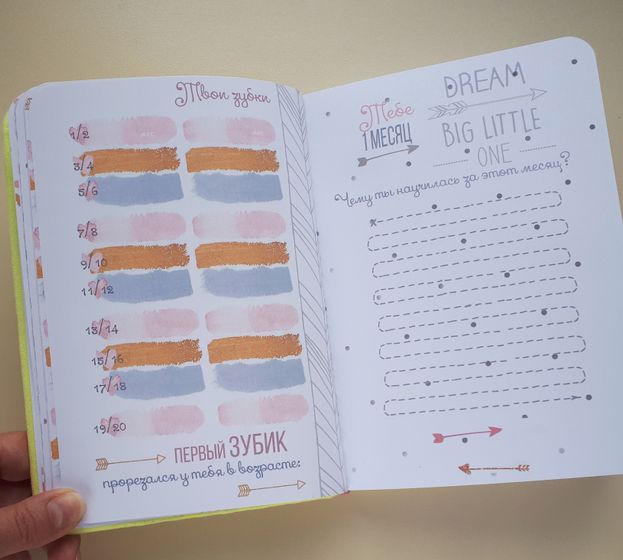 Твои зубки
1/2
3/4
5/6
7/8
9/10
11/12
13/14
15/16
17/18
19/20
ПЕРВЫЙ ЗУБИК
прорезался у тебя в возрасте:
Тебе
1 МЕСЯЦ
DREAM
BIG LITTLE
ONE
Чему ты научилась за этот месяц?